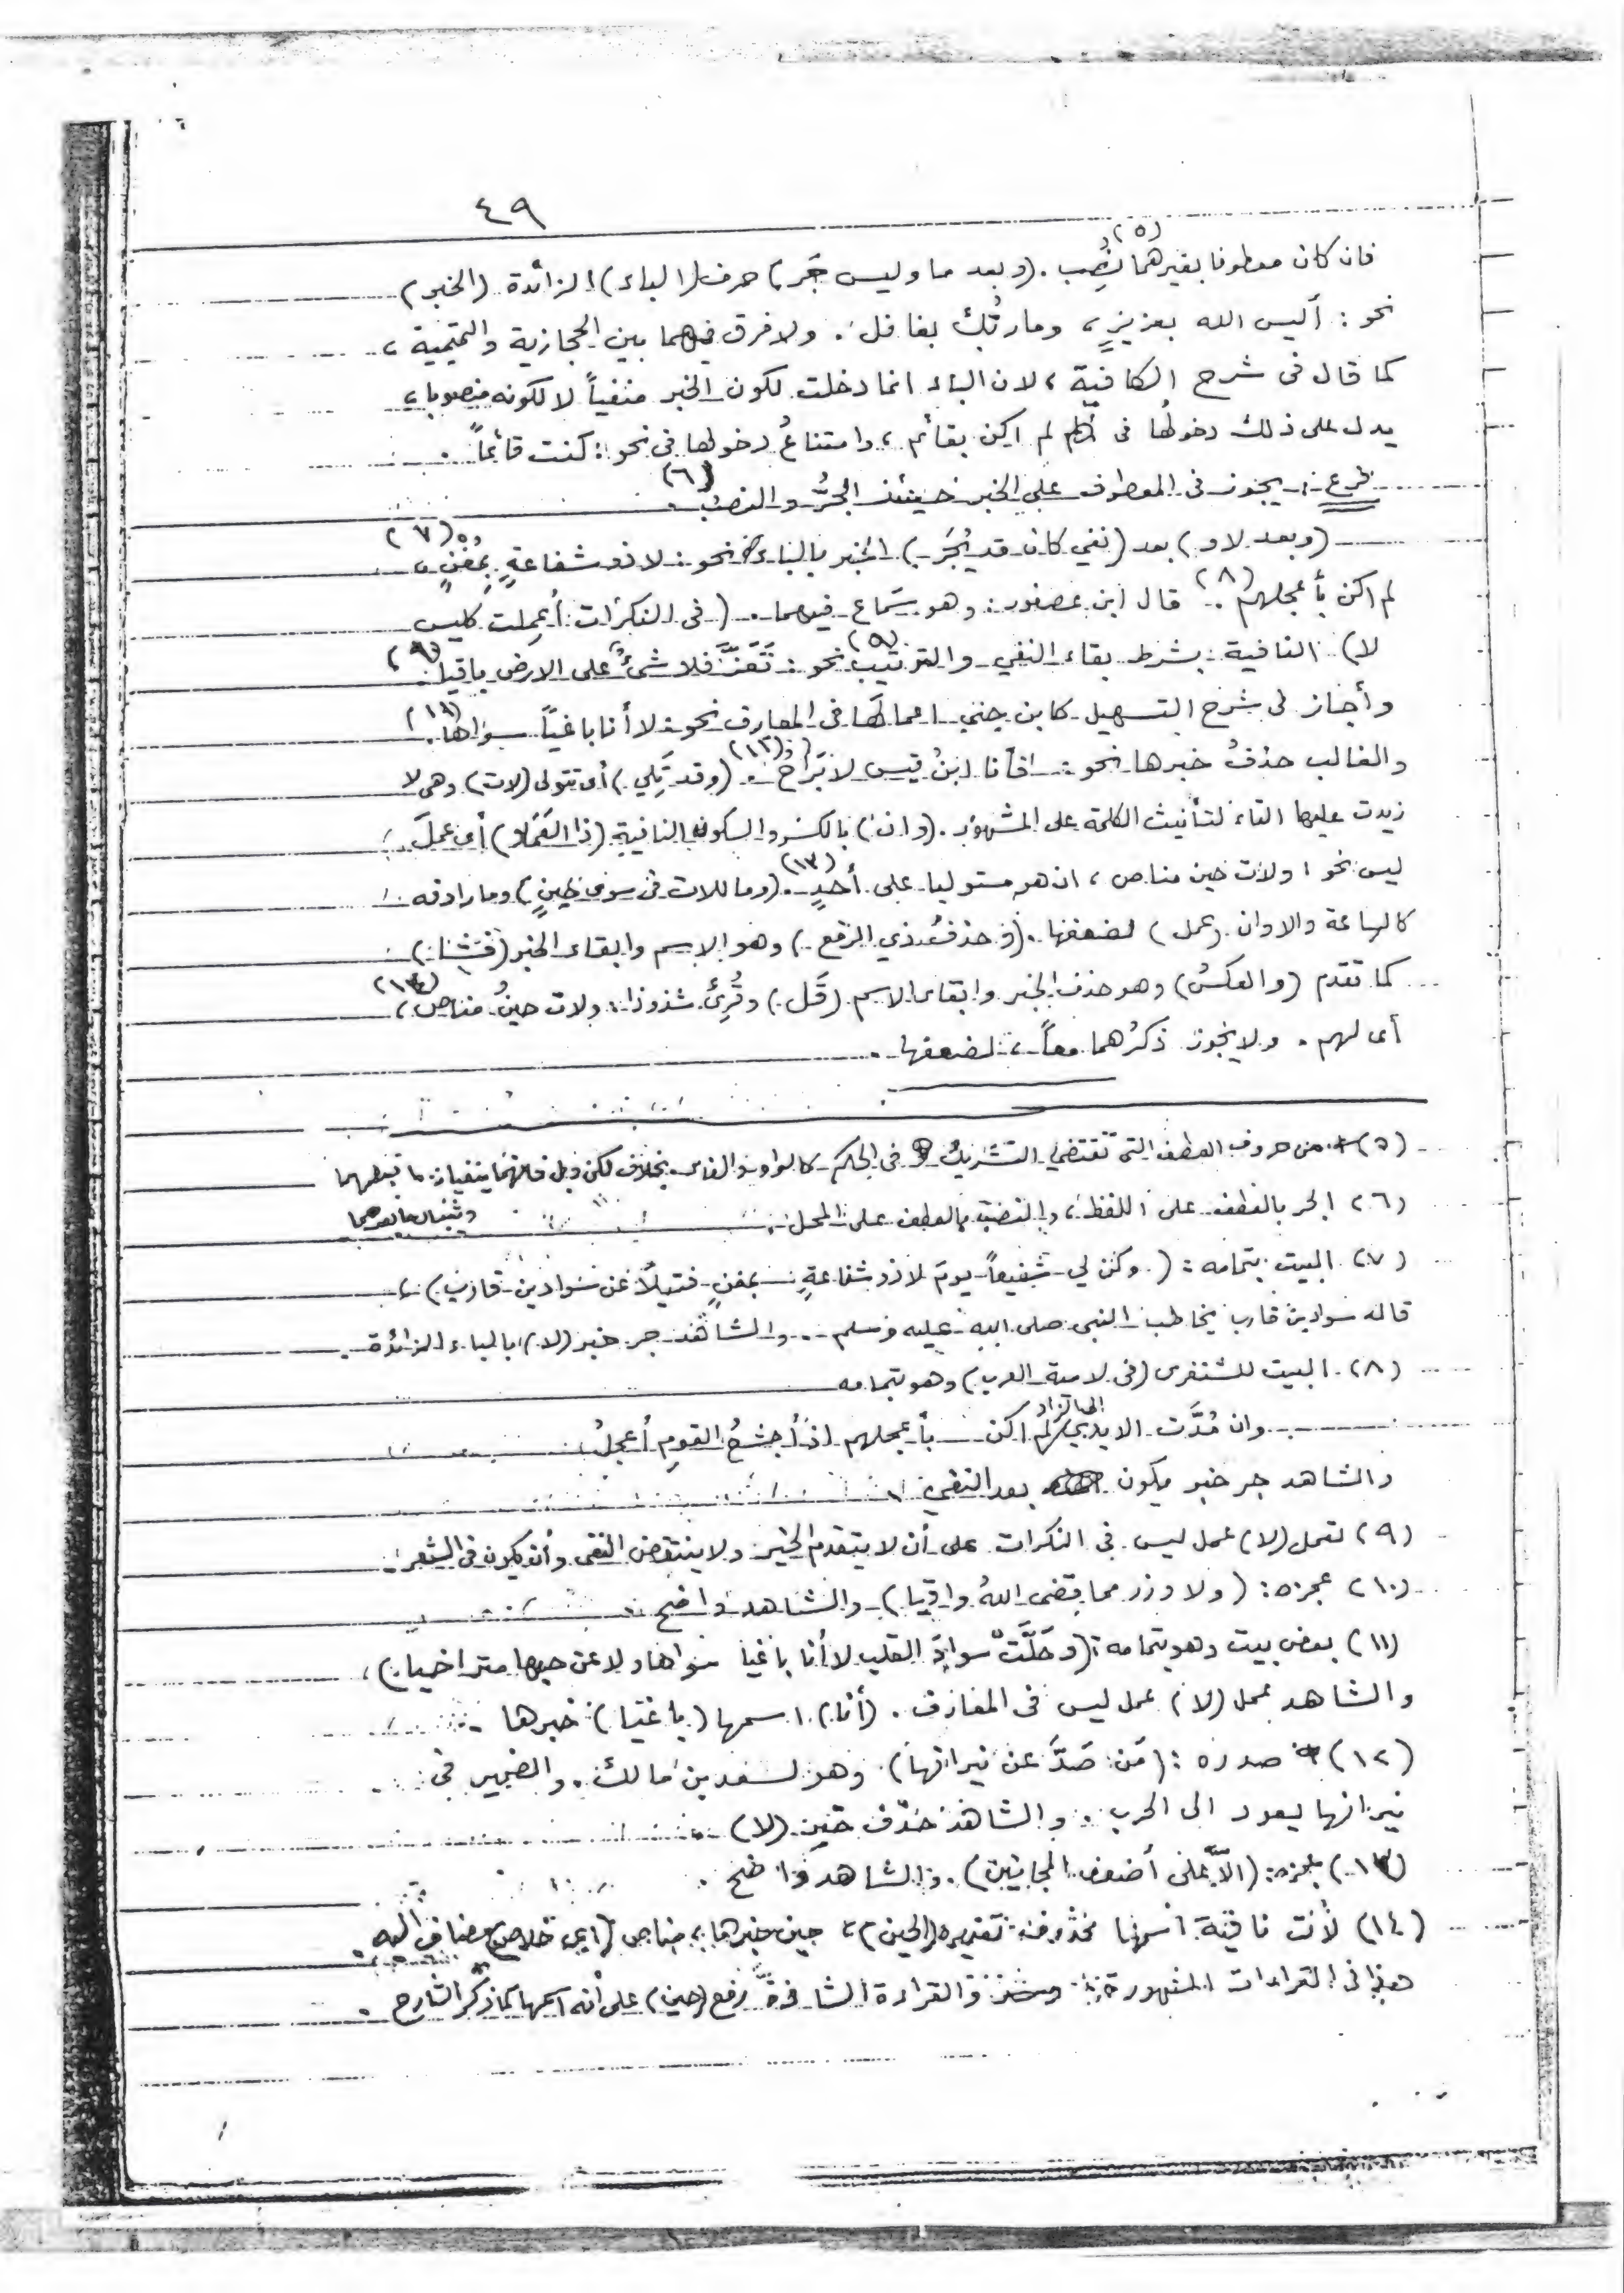 ٤٩
فان كان معطوفا بغيرهما نُصِب (٥). (وبعد ما وليس جَر) حرف (الباء) الزائدة (الخبر)
نحو : أليس الله بعزيزٍ ، وما ربُّك بغافل . ولا فرق فيهما بين الحجازية والتميمية ،
كما قال في شرح الكافية ، لان الباء انما دخلت لكون الخبر منفياً لا لكونه منصوبا ،
يدل على ذلك دخولُها في لم اكن بقائم ، وامتناعُ دخولها في نحو : كنت قائماً .
فرع :- يجوز في المعطوف على الخبر حينئذ الجرُّ والنصبُ (٦) .
(وبعد لا و) بعد (نفي كان قد يُجَر) الخبر بالباء نحو : لا ذو شفاعةٍ بمغنٍ (٧) ،
لم اكن بأعجلهم (٨) . قال ابن عصفور : وهو سَماع فيهما . (في النكرات أُعمِلت كليس
لا) النافية بشرط بقاء النفي والترتيب (٩) نحو : تَعَزَّ فلا شئٌ على الارض باقيا (٩) ،
وأجاز في شرح التسهيل كابن جني اعمالَها في المعارف نحو : لا أنا باغياً سواها (١١) .
والغالب حذفُ خبرها نحو : فأنا ابنُ قيس لا بَراحُ (١٢) . (وقد تَلي) أى تتولى (لات) وهى لا
زيدت عليها التاء لتأنيث الكلمة على المشهور . (وان) بالكسر والسكون النافية (ذا العَمَلا) أى عملَ
ليس نحو ، ولات حين مناص ، ان هو مستوليا على أحدٍ (١٣) . (وما للات في سوى حينٍ) وما رادفه
كالساعة والاوان (عمل) لضعفها . (وحذفُ ذي الرفع) وهو الاسم وابقاء الخبر (فَشا)
كما تقدم (والعكسُ) وهو حذف الخبر وابقاء الاسم (قَل) وقُرِئَ شذوذا : ولات حينُ مناص (١٤) ،
أى لهم . ولا يجوز ذكرُهما معاً ، لضعفها .
(٥) من حروف العطف التى تقتضي التشريك في الحكم كالواو والفاء بخلاف لكن وبل فانهما ينفيان ما قبلهما
ويثبتان ما بعدهما
(٦) الجر بالعطف على اللفظ ، والنصب بالعطف على المحل .
(٧) البيت بتمامه : (وكن لي شفيعاً يومَ لا ذو شفاعةٍ بمغنٍ فتيلاً عن سواد بن قارب) ،
قاله سواد بن قارب يخاطب النبي صلى الله عليه وسلم . والشاهد جر خبر (لا) بالباء الزائدة .
(٨) البيت للشنفرى (في لامية العرب) وهو بتمامه
وان مُدَّت الايدي الى الزاد لم اكن بأعجلهم اذ أجشعُ القومِ أعجلُ
والشاهد جر خبر يكون بعد النفي .
(٩) تعمل (لا) عمل ليس في النكرات على أن لا يتقدم الخبر ولا ينتقض النفى وأن يكون في الشعر .
(١٠) عجزه : (ولا وزر مما قضى اللهُ واقيا) والشاهد واضح .
(١١) بعض بيت وهو بتمامه : (وحَلَّتْ سوادَ القلب لا أنا باغيا سواها ولا عن حبها متراخيا) ،
والشاهد عمل (لا) عمل ليس في المعارف . (أنا) اسمها (باغيا) خبرها .
(١٢) صدره : (مَن صَدَّ عن نيرانها) . وهو لسعد بن مالك . والضمير في
نيرانها يعود الى الحرب . والشاهد حذف خبر (لا) .
(١٣) عجزه : (الاّ على أضعف المجانين) . والشاهد واضح .
(١٤) لات نافية اسمها محذوف تقديره (الحين) ، حين خبرها ، مناص (اى خلاص) مضاف اليه .
هذا في القراءات المشهورة والقراءة الشاذة رفع (حين) على أنه اسمها كما ذكر الشارح .